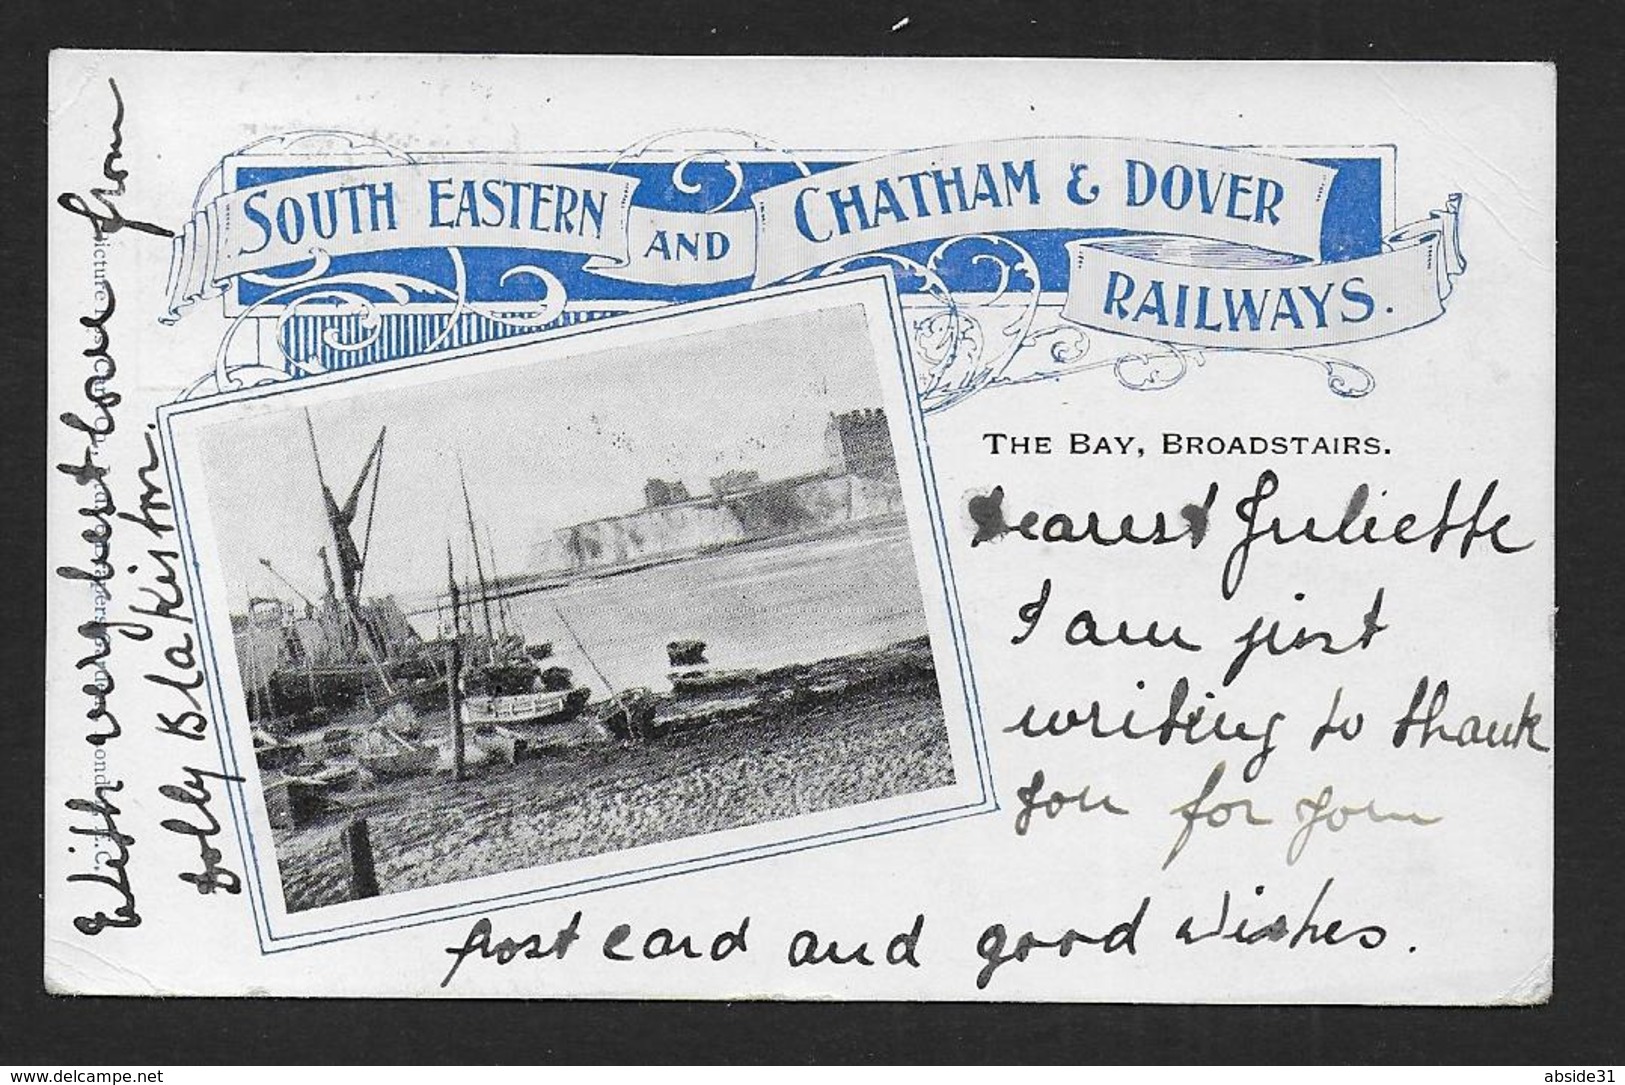 SOUTH EASTERN AND CHATHAM & DOVER RAILWAYS.
THE BAY, BROADSTAIRS.
Dearest Juliette
I am just
writing to thank
you for your
post card and good wishes.
With very best love from
Dolly Blakiston.
www.delcampe.net
abside31